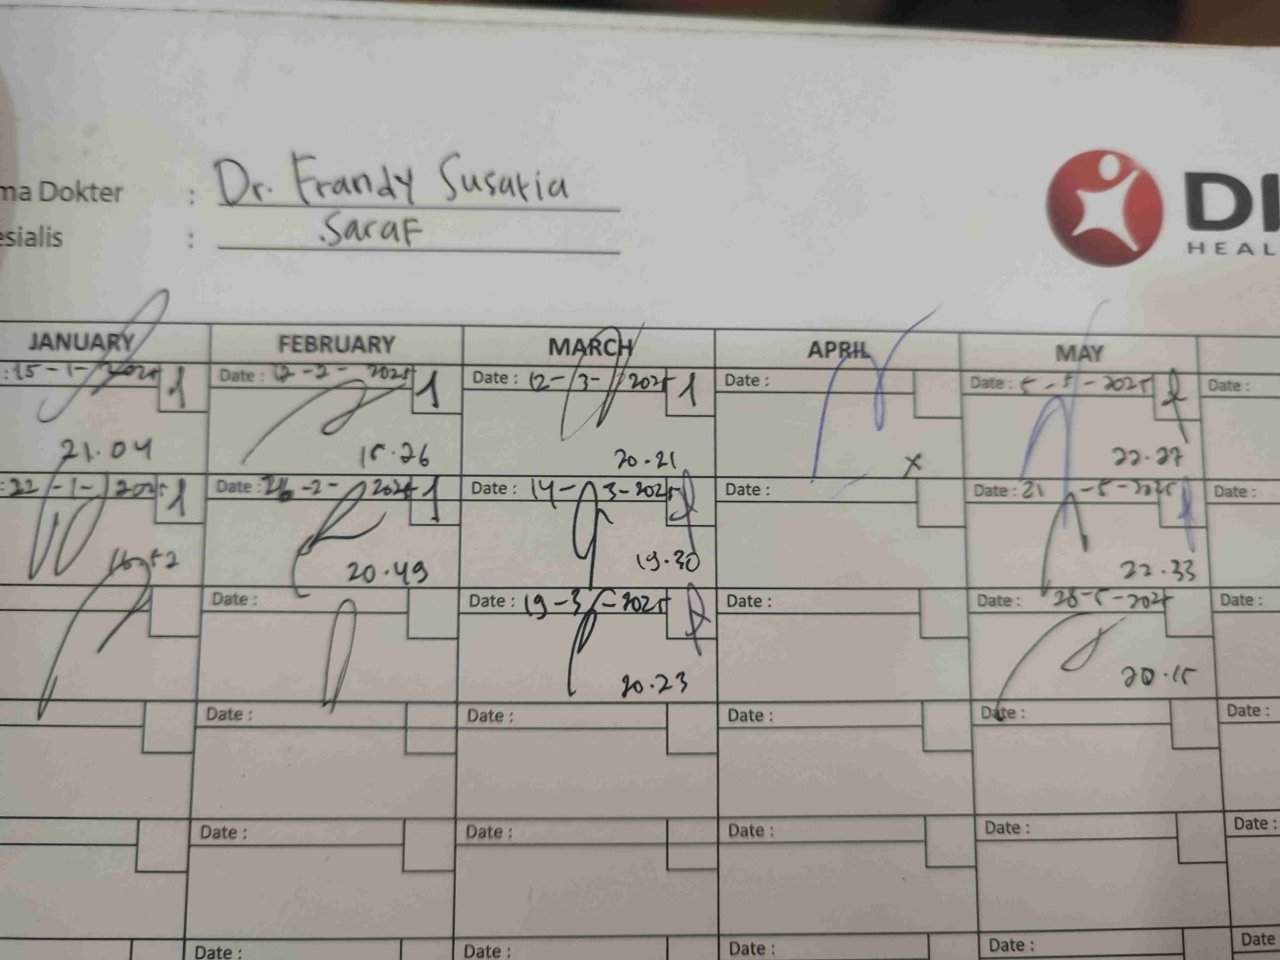 ma Dokter : Dr. Frandy Susatia
esialis : Saraf
DI
HEAL
JANUARY FEBRUARY MARCH APRIL MAY
: 15-1-2025 1 Date : 12-2-2025 1 Date : 12-3-2025 1 Date : Date : 5-5-2025 Date :
21.04 15.26 20.21 x 22.27
: 22-1-2025 1 Date : 26-2-2025 1 Date : 14-3-2025 Date : Date : 21-5-2025 Date :
20.49 19.30 22.33
Date : Date : 19-3-2025 Date : Date : 28-5-2025 Date :
20.23 20.15
Date : Date : Date : Date : Date :
Date : Date : Date : Date : Date :
Date : Date : Date : Date : Date